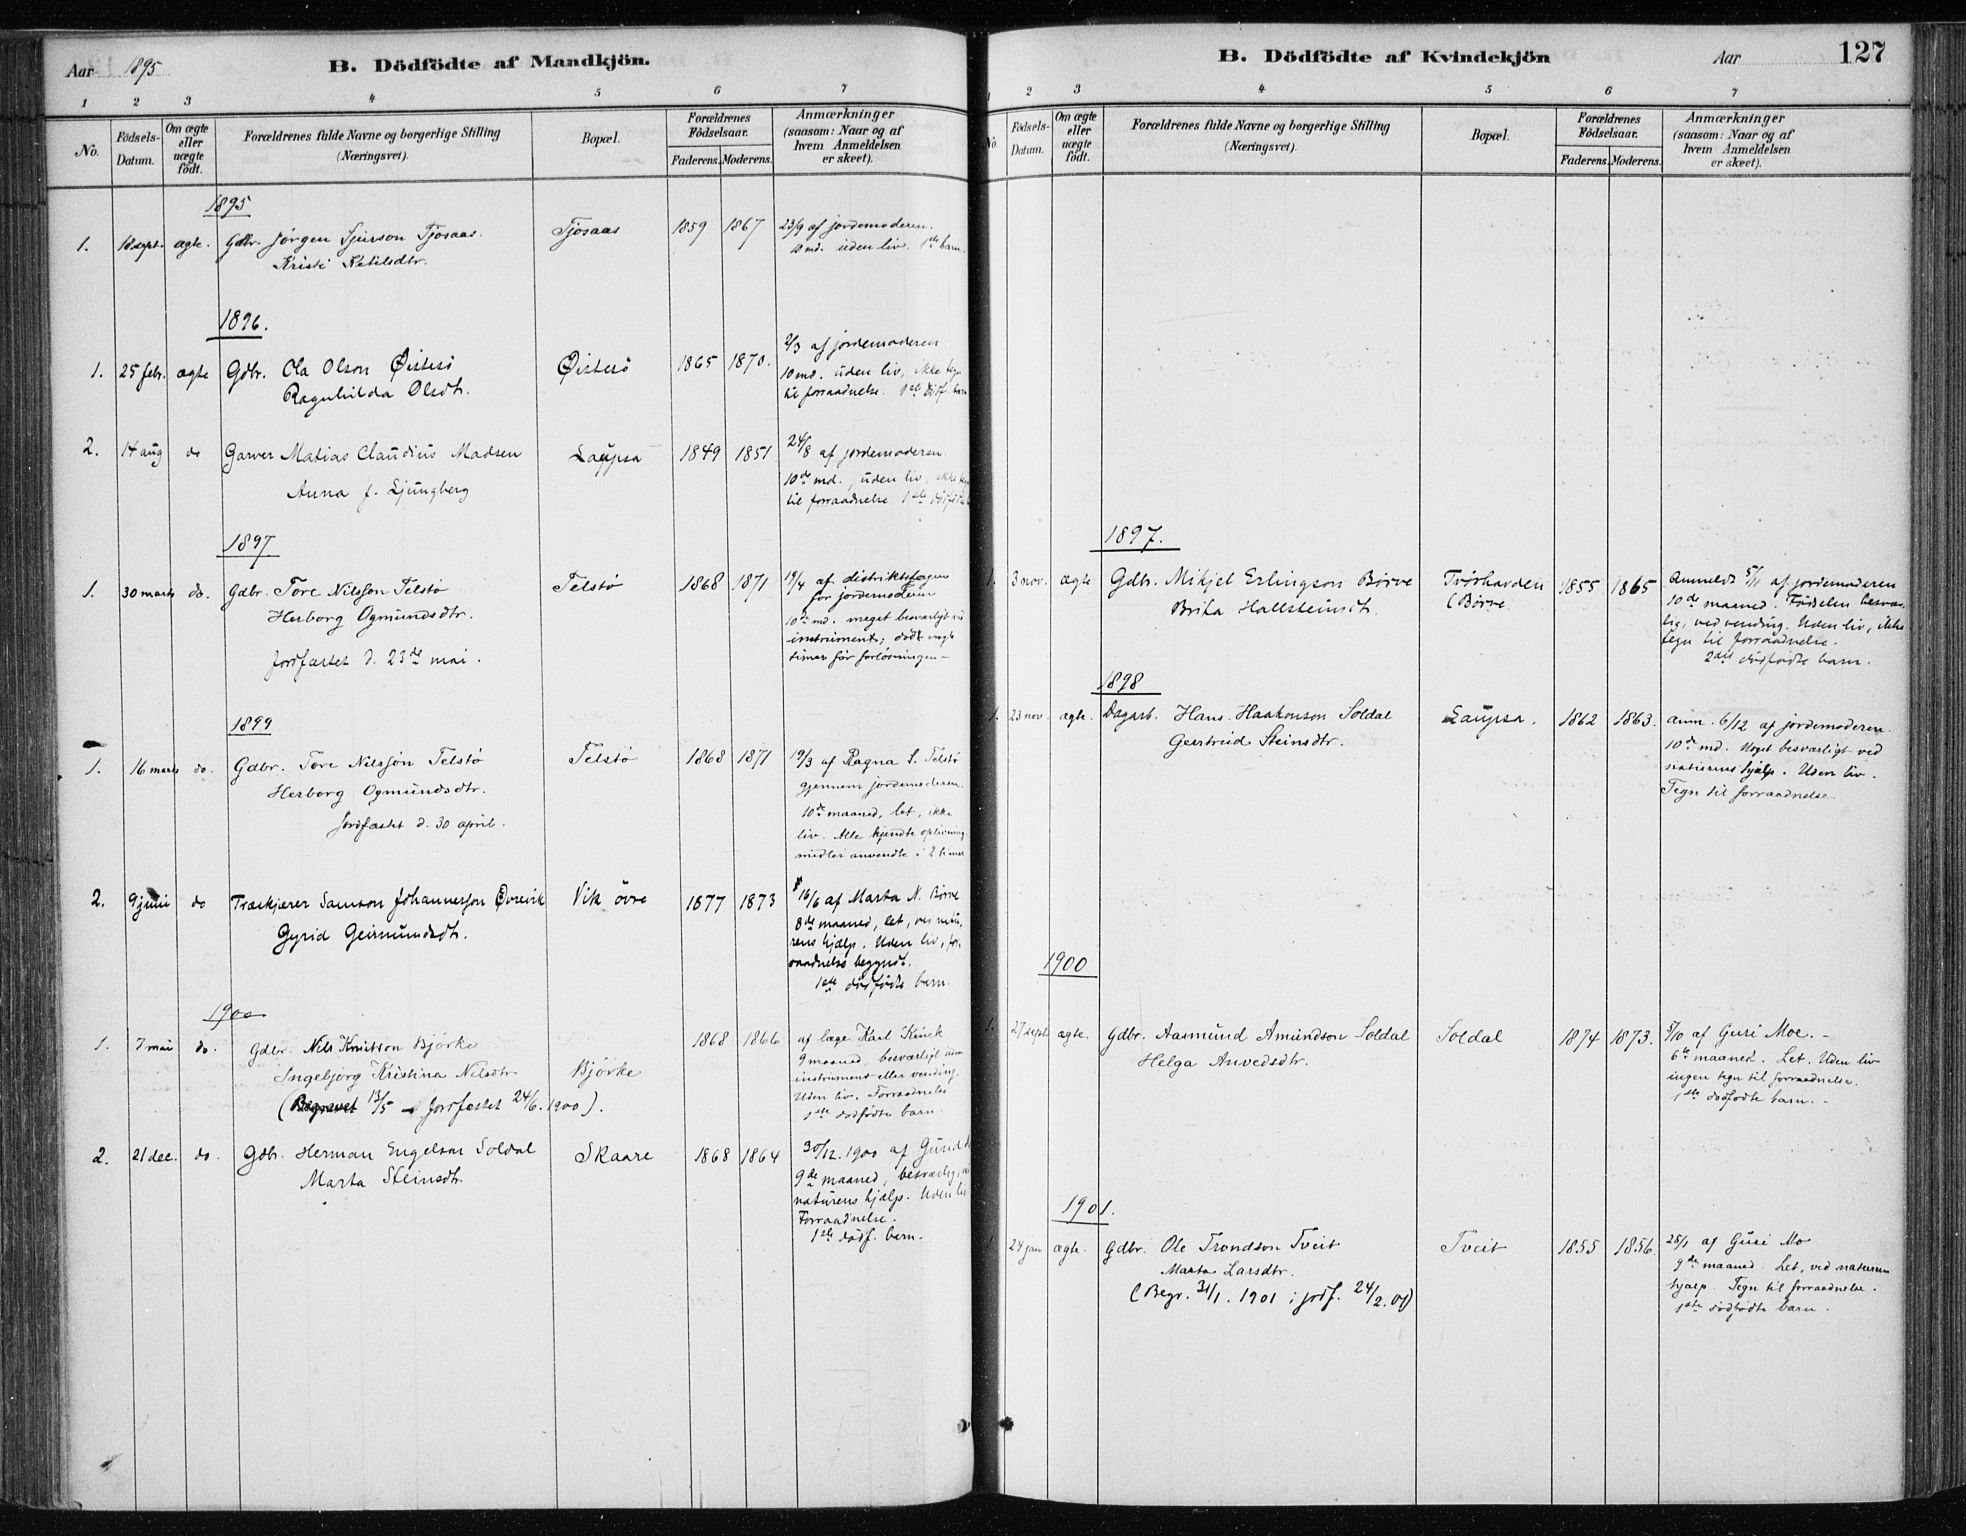 Aar 1895
B. Dödfödte af Mandkjön.
1 2 3 4 5 6 7
No. Födsels-Datum. Om ægte eller uægte födt. Forældrenes fulde Navne og borgerlige Stilling (Næringsvei). Bopæl. Forældrenes Födselsaar. Faderens. Moderens. Anmærkninger (saasom: Naar og af hvem Anmeldelsen er skeet).
1895
1. 18 sept. ægte. Gdbr. Jörgen Sjurson Tjosaas. Tjosaas 1859 1867 23/9 af jordemoderen.
Kristi Ketilsdtr. 10 md. uden liv. 1ste barn.
1896.
1. 25 febr. ægte Gdbr. Ola Olson Øistesö Øistesö 1865 1870. 2/3 af jordemoderen
Ragnhilda Olsdtr. 10 md. uden liv, ikke tegn
til forraadnelse. 1ste dödf. barn
2. 14 aug do Garver Matias Claudius Madsen Laupsa 1849 1851 24/8 af jordemoderen.
Anna f. Ljungberg 10de md., uden liv, ikke
til forraadnelse 1ste dödfödte
1897
1. 30 marts do. Gdbr. Tore Nilsson Telstø Telstø 1868 1871 19/4 af distriktslægen
for jordemoderen
Herborg Ogmundsdtr. 10de md. meget besværligt ved
instrument; død
Jordfæstet d. 23de mai. timer før forløsningen –
1899
1. 16 marts do. Gdbr. Tore Nilssøn Telstø Telstø 1868 1871 19/3 af Ragna S. Telstø
Herborg Ogmundsdtr. gjennem jordemoderen.
10de maaned, let, ikke
Jordfæstet d. 30 april. liv. Alle kjendte oplivnings
midler anvendte i 2 timer
2. 9 juni do Træskjærer Samson Johannesson Øvrevik Vik övre 1877 1873 16/6 af Marta N. Börve
Gyrid Geirmundsdtr. 8de maaned, let, ved natu-
rens hjælp. Uden liv, for-
raadnelse begyndt.
1ste dödfödte barn.
1900
1. 7 mai do. Gdbr. Nils Knutson Bjørke 1868 1866 af læge Karl Kinck
Ingebjørg Kristina Nilsdtr Bjørke 9 maaned, besværligt uden
instrument eller vending.
(Begravet 13/5 – Jordfæstet 24/6. 1900). Uden liv. Forraadnelse
1ste dødfødte barn.
2. 21 dec. do. Gdbr. Herman Engelson Soldal Skaare 1868 1864 30/12. 1900 af
Marta Steinsdtr. 9de maaned, besværlig,
naturens hjælp. Uden liv
Forraadnelse.
1ste dödf. barn.
B. Dödfödte af Kvindekjön
Aar 127
1 2 3 4 5 6 7
No. Födsels-Datum. Om ægte eller uægte födt. Forældrenes fulde Navne og borgerlige Stilling (Næringsvei). Bopæl. Forældrenes Födselsaar. Faderens. Moderens. Anmærkninger (saasom: Naar og af hvem Anmeldelsen er skeet).
1897.
1. 3 nov. ægte Gdbr. Mikjel Erlingson Børve Tvörhavden 1855 1865 Anmeldt 5/11 af jordemoderen
Brita Hallsteinsdt. (Børve 10de maaned. Fødselen besvær-
lig, ved vending. Uden liv, ikke
tegn til forraadnelse.
2det dödfödte barn.
1898
1. 23 nov. ægte. Dagarb. Hans Haakonson Soldal Laupsa. 1862 1863. anm. 6/12 af jordemoderen.
Gertrud Steinsdtr. 10de md. Noget besværligt ved
naturens hjælp. Uden liv.
Tegn til forraadnelse
1900
1. 27 sept ægte. Gdbr. Aasmund Amundson Soldal Soldal 1874 1873. 5/10 af Guri Moe. –
Helga Anvedsdtr. 6te maaned. Let. Uden liv
ingen tegn til forraadnelse.
1ste dødfødte barn. –
1901.
1 24 jan ægte. Gdbr. Ole Trondson Tveit Tveit 1855 1856 28/1 af Guri Mo
Marta Larsdtr. 9de maaned. Let, ved naturens
(Begr. 31/1. 1901; jordf. 24/2. 01) hjælp. Tegn til forraadnelse.
1ste dödfödte barn.